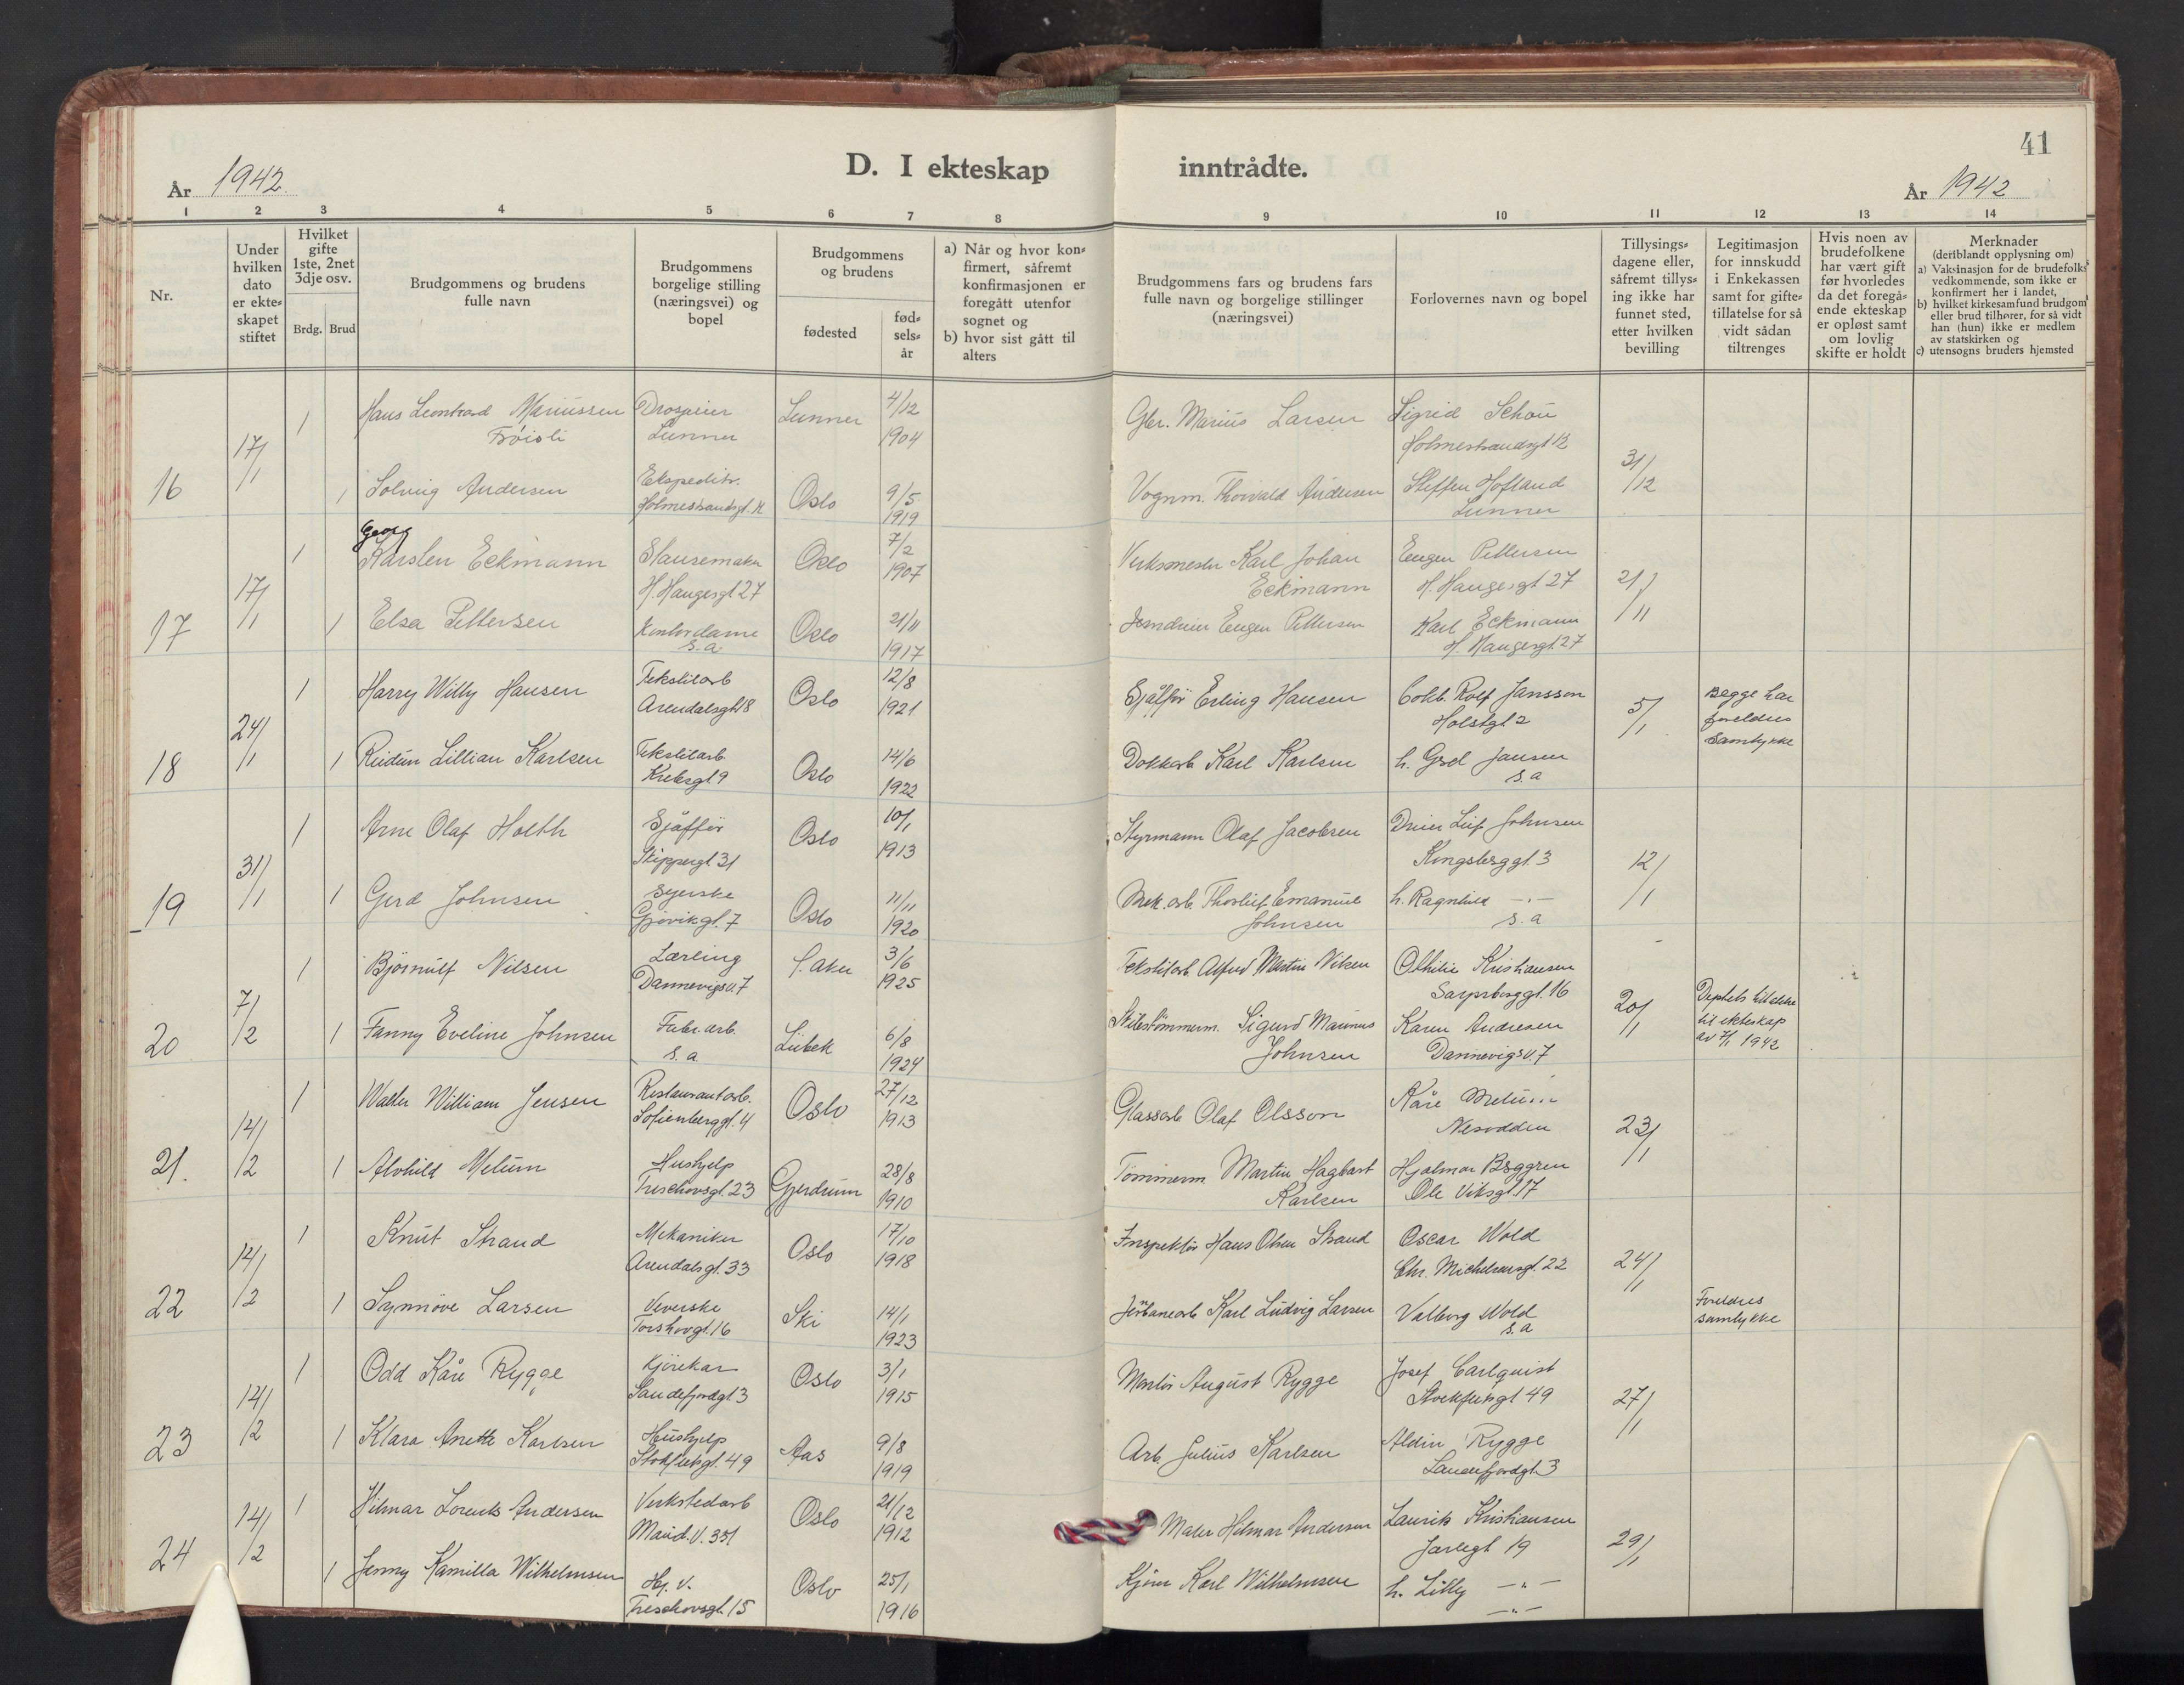 41
D. I ekteskap inntrådte.
År 1942
År 1942
1 2 3 4 5 6 7 8 9 10 11 12 13 14
Nr.
Under
hvilken
dato
er ekte-
skapet
stiftet
Hvilket
gifte
1ste, 2net
3dje osv.
Brdg. Brud
Brudgommens og brudens
fulle navn
Brudgommens
borgelige stilling
(næringsvei) og
bopel
Brudgommens
og brudens
fødested
fød-
sels-
år
a) Når og hvor kon-
firmert, såfremt
konfirmasjonen er
foregått utenfor
sognet og
b) hvor sist gått til
alters
Brudgommens fars og brudens fars
fulle navn og borgelige stillinger
(næringsvei)
Forlovernes navn og bopel
Tillysings-
dagene eller,
såfremt tillys-
ing ikke har
funnet sted,
etter hvilken
bevilling
Legitimasjon
for innskudd
i Enkekassen
samt for gifte-
tillatelse for så
vidt sådan
tiltrenges
Hvis noen av
brudefolkene
har vært gift
før hvorledes
da det foregå-
ende ekteskap
er opløst samt
om lovlig
skifte er holdt
Merknader
(deriblandt opplysning om)
a) Vaksinasjon for de brudefolks
vedkommende, som ikke er
konfirmert her i landet,
b) hvilket kirkesamfund brudgom
eller brud tilhører, for så vidt
han (hun) ikke er medlem
av statskirken og
c) utensogns bruders hjemsted
16 17/1
1 Hans Leonhard Mariussen Lunner 4/12 Gbr. Marius Larsen Sigrid Schou
Frøisli Lunner 1904 Holmestrandsgt 12
31/12
1 Solveig Andersen Ekspeditr. Oslo 9/5 Vognm. Thorvald Andersen Steffen Hofland
Holmestrandsgt. 1919 Lunner
17 17/1
Georg
1 Karsten Eckmann Oslo 7/2 Verksmester Karl Johan Eugen Pettersen
H. Haugesgt 27 1907 Eckmann H. Haugesgt 27
21/11
1 Elsa Pettersen Kontordame Oslo 21/11 Jerndreier Eugen Pettersen Karl Eckmann
s.a. 1917 H. Haugesgt. 27
18 24/1
1 Harry Willy Hansen Tekstilarb Oslo 12/8 Sjåfför Erling Hansen Rolf Jansson Begge har
Arendalsgt 18 1921 Holstgt 2 5/1 foreldres
samtykke
1 Reidun Lillian Karlsen Tekstilarb Oslo 14/6 Dokkarb Karl Karlsen h. Gerd Jansen
Krebsgt 9 1922 s.a
19 31/1
1 Arne Olaf Holth Sjåffør Oslo 10/1 Styrmann Olaf Jacobsen Dreier Leif Johnsen
Skippergt 31 1913 Kongsberggt. 3
12/1
1 Gerd Johnsen Syerske Oslo 11/11 Mek. arb. Thorleif Emanuel h. Ragnhild —"—
Gjøvikgt. 7 1920 Johnsen s.a
20 7/2
1 Bjørnulf Nilsen Lærling V. Aker 3/6 Tekstilarb. Alfred Martin Nilsen Othilie Kristiansen
Dannevigsv. 7 1925 Sarpsborggt. 16
20/1
1 Fanny Eveline Johnsen Fabr. arb. Lübek 6/8 Sigurd Marinus Karen Andresen til ekteskap
s.a 1924 Johnsen Dannevigsv. 7 av 7/1 1942
21. 14/2
1 Walter William Jensen Restaurantarb. Oslo 27/12 Glassarb Olaf Olsson Kåre Melum
Sofienberggt. 4 1913 Nesodden
23/1
1 Alvhild Melum Hushjelp Gjerdrum 28/8 Tømmerm Martin Hagbart Hjalmar Byggren
Treschowsgt. 23 1910 Karlsen Ole Viksgt. 17
22 14/2
1 Knut Strand Mekaniker Oslo 17/10 Inspektör Hans Olsen Strand Oscar Wold
Arendalsgt. 33 1918 Chr. Michelsensgt. 22
24/1
1 Synnöve Larsen Veverske Ski 14/1 Jernbanearb Karl Ludvig Larsen Valborg Wold Foreldres
Torshovgt. 16 1923 s.a samtykke
23 14/2
1 Odd Kåre Rygge Kjørekar Oslo 3/1 August Rygge Josef Carlquist
Sandefjordgt 3 1915 Stockfletsgt 49
27/1
1 Klara Anette Karlsen Hushjelp Aas 9/8 Arb. Julius Karlsen Aldin Rygge
Stokfletsgt. 49 1919 Sandefjordgt. 3
24 14/2
1 Hilmar Lorents Andersen Verkstedarb Oslo 21/12 Maler Helmar Andersen Laurits Kristiansen
1912 Jarlegt 19
29/1
1 Jenny Kamilla Wilhelmsen Hj. v. Oslo 25/1 Kjører Karl Wilhelmsen h. Lilly —"—
Treschowsgt. 15 1916 —"—